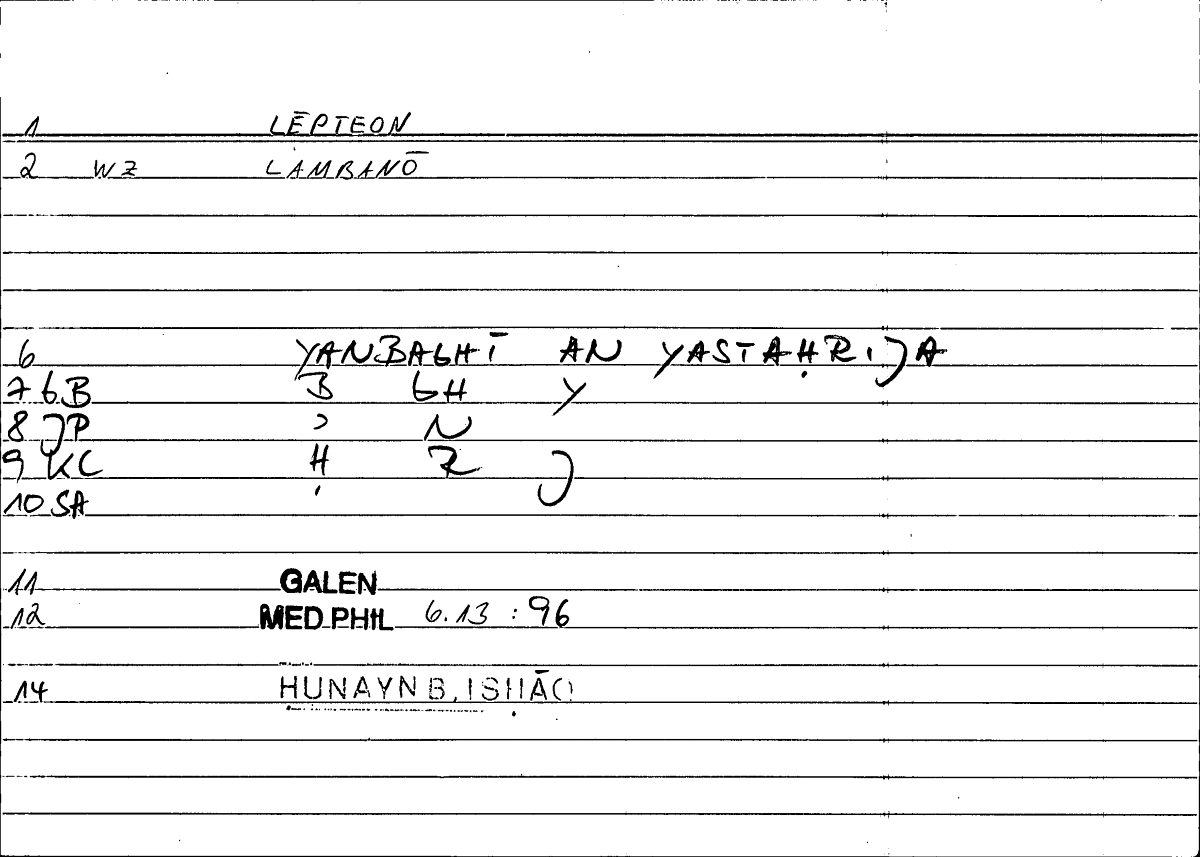 1 LĒPTEON
2 WZ LAMBANŌ
6 YANBAGHĪ AN YASTAḤRIJA
7 GB B GH Y
8 JP ʾ N
9 KC Ḥ R J
10 SA
11 GALEN
12 MED PHIL 6.13 : 96
14 ḤUNAYN B. ISḤĀQ